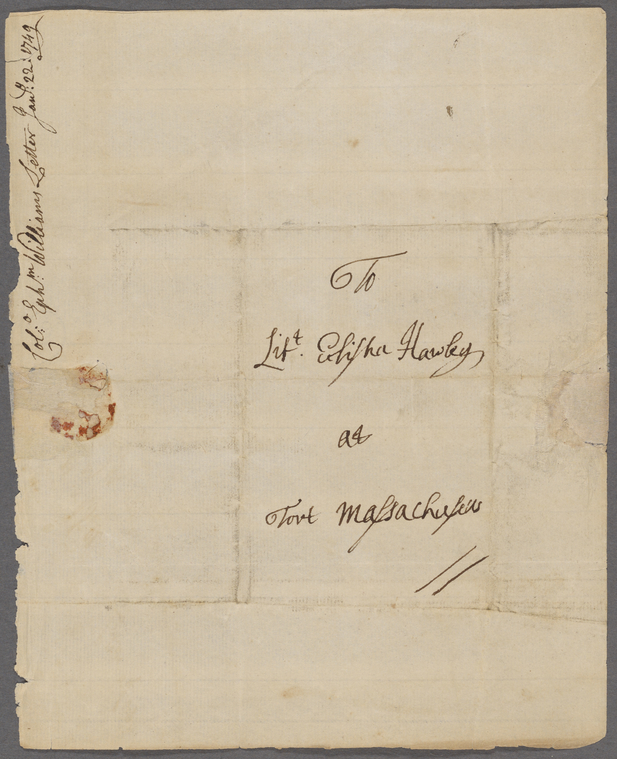 To
Lit.t Elisha Hawley
at
Fort Massachusets
Col:o Eph:m Williams Letter Jan.y 22: 1749